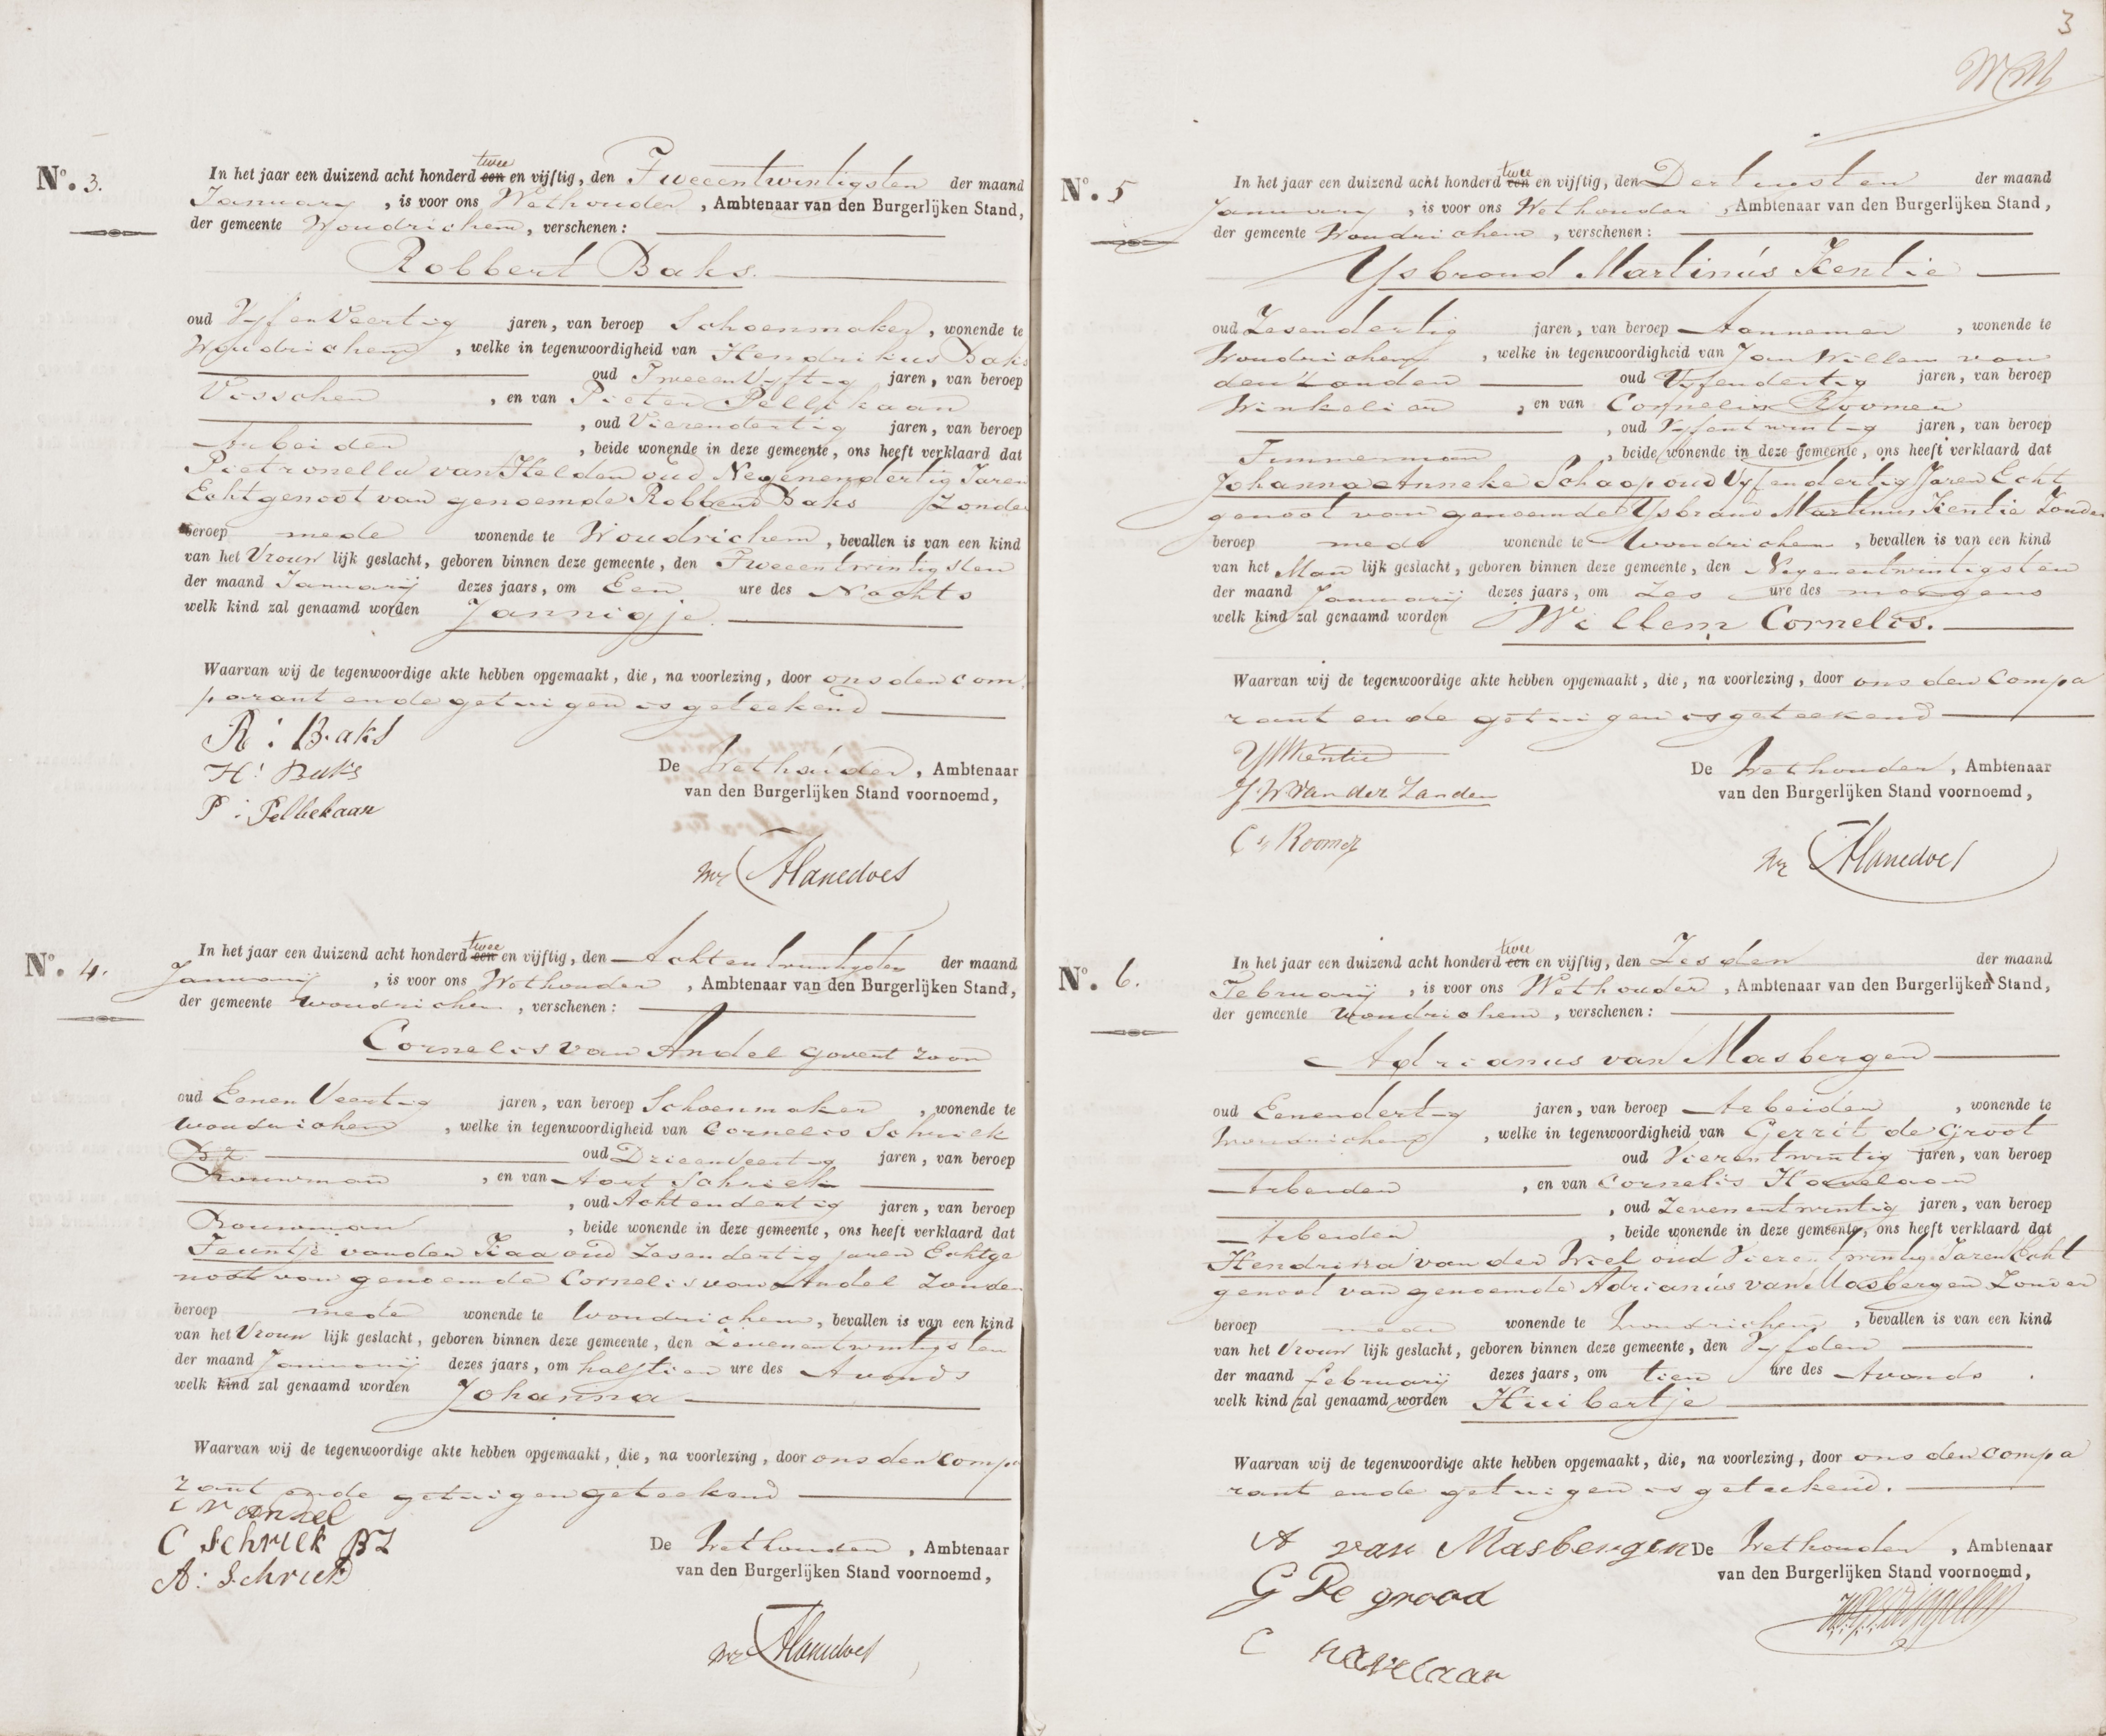 No. 3.
In het jaar een duizend acht honderd een twee en vijftig, den Tweeentwintigsten der maand
January, is voor ons Wethouder, Ambtenaar van den Burgerlijken Stand,
der gemeente Woudrichem, verschenen:
Robbert Baks.
oud Vyfen Veertig jaren, van beroep Schoenmaker, wonende te
Woudrichem, welke in tegenwoordigheid van Hendrikus Baks
oud Tweeen Vyftig jaren, van beroep
Visscher, en van Pieter Pellikaan
, oud Vierendertig jaren, van beroep
Arbeider, beide wonende in deze gemeente, ons heeft verklaard dat
Pietronella van Helden oud Negenendertig Jaren
Echtgenoot van genoemde Robbert Baks Zonder
beroep mede wonende te Woudrichem, bevallen is van een kind
van het Vrouw lijk geslacht, geboren binnen deze gemeente, den Tweeentwintigsten
der maand Januarij dezes jaars, om Een ure des Nachts
welk kind zal genaamd worden Jannigje.
Waarvan wij de tegenwoordige akte hebben opgemaakt, die, na voorlezing, door ons den com
parant en de getuigen is geteekend
R: Baks
H: Baks
P: Pellekaan
De Wethouder, Ambtenaar
van den Burgerlijken Stand voornoemd,
Mr Hanedoes
No. 4.
In het jaar een duizend acht honderd een twee en vijftig, den Achtentwintigsten der maand
Januarij, is voor ons Wethouder, Ambtenaar van den Burgerlijken Stand,
der gemeente Woudrichem, verschenen:
Cornelis van Andel Govert zoon
oud Eenen Veertig jaren, van beroep Schoenmaker, wonende te
Woudrichem, welke in tegenwoordigheid van Cornelis Schriek
Bz. oud Drieen Veertig jaren, van beroep
Bouwman, en van Aart Schriek
, oud Achtendertig jaren, van beroep
Bouwman, beide wonende in deze gemeente, ons heeft verklaard dat
Teuntje van der Kaa oud Zesendertig jaren Echtge
noot van genoemde Cornelis van Andel Zonder
beroep mede wonende te Woudrichem, bevallen is van een kind
van het Vrouw lijk geslacht, geboren binnen deze gemeente, den Zevenentwintigsten
der maand Januarij dezes jaars, om half tien ure des Avonds
welk kind zal genaamd worden Johanna
Waarvan wij de tegenwoordige akte hebben opgemaakt, die, na voorlezing, door ons den Compa
rant en de getuigen geteekend
C v andel
C Schriek BZ
A: Schriek
De Wethouder, Ambtenaar
van den Burgerlijken Stand voornoemd,
Mr Hanedoes
3
No. 5
In het jaar een duizend acht honderd een twee en vijftig, den Dertigsten der maand
January, is voor ons Wethouder, Ambtenaar van den Burgerlijken Stand,
der gemeente Woudrichem, verschenen:
Ysbrand Martinus Kentie
oud Zesendertig jaren, van beroep Aannemer, wonende te
Woudrichem, welke in tegenwoordigheid van Jan Willem van
der Zanden oud Vyfendertig jaren, van beroep
Winkelier, en van Cornelis Roomer
, oud Vyfentwintig jaren, van beroep
Timmerman, beide wonende in deze gemeente, ons heeft verklaard dat
Johanna Anneke Schaap oud Vyfendertig Jaren Echt
genoot van genoemde Ysbrand Martinus Kentie Zonder
beroep mede wonende te Woudrichem, bevallen is van een kind
van het Man lijk geslacht, geboren binnen deze gemeente, den Negenentwintigsten
der maand Januarij dezes jaars, om Zes ure des morgens
welk kind zal genaamd worden Willem Cornelis.
Waarvan wij de tegenwoordige akte hebben opgemaakt, die, na voorlezing, door ons den Compa
rant en de getuigen is geteekend
YMKentie
J. W. Van der Zanden
Cs Roomer
De Wethouder, Ambtenaar
van den Burgerlijken Stand voornoemd,
Mr Hanedoes
No. 6.
In het jaar een duizend acht honderd een twee en vijftig, den Zesden der maand
Februarij, is voor ons Wethouder, Ambtenaar van den Burgerlijken Stand,
der gemeente Woudrichem, verschenen:
Adrianus van Masbergen
oud Eenendertig jaren, van beroep Arbeider, wonende te
Woudrichem, welke in tegenwoordigheid van Gerrit de Groot
oud Vierentwintig jaren, van beroep
Arbeider, en van Cornelis Havelaar
, oud Zevenentwintig jaren, van beroep
Arbeider, beide wonende in deze gemeente, ons heeft verklaard dat
Hendrika van der Wiel oud Vierentwintig Jaren Echt
genoot van genoemde Adrianus van Masbergen Zonder
beroep mede wonende te Woudrichem, bevallen is van een kind
van het Vrouw lijk geslacht, geboren binnen deze gemeente, den Vyfden
der maand februarij dezes jaars, om tien ure des Avonds.
welk kind zal genaamd worden Huibertje
Waarvan wij de tegenwoordige akte hebben opgemaakt, die, na voorlezing, door ons den Compa
rant en de getuigen is geteekend.
A van Masbergen
G De grood
C havelaar
De Wethouder, Ambtenaar
van den Burgerlijken Stand voornoemd,